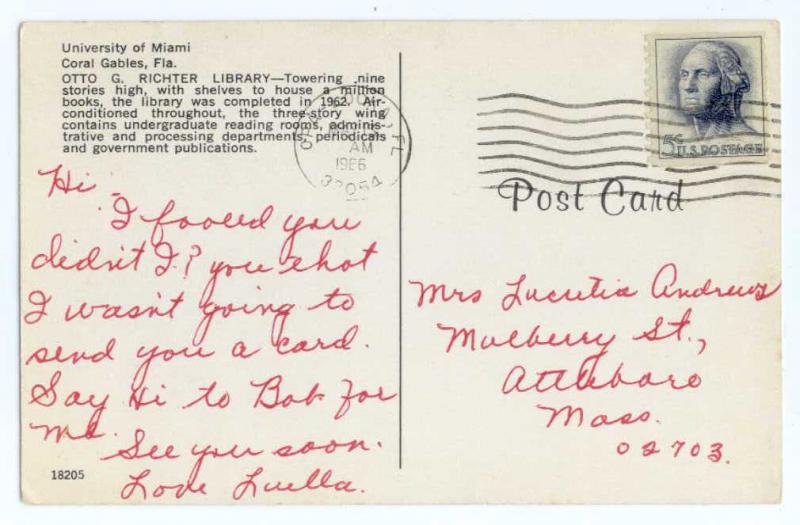 University of Miami
Coral Gables, Fla.
OTTO G. RICHTER LIBRARY—Towering nine
stories high, with shelves to house a million
books, the library was completed in 1962. Air-
conditioned throughout, the three-story wing
contains undergraduate reading rooms, adminis-
trative and processing departments, periodicals
and government publications.
FL
AM
1966
5¢ U.S. POSTAGE
Post Card
Hi -
I fooled you
didn't I? you thot
I wasn't going to
send you a card.
Say Hi to Bob for
me.
See you soon.
Love Luella.
Mrs Lucretia Andrews
Mulberry St.,
Attleboro
Mass.
02703.
18205